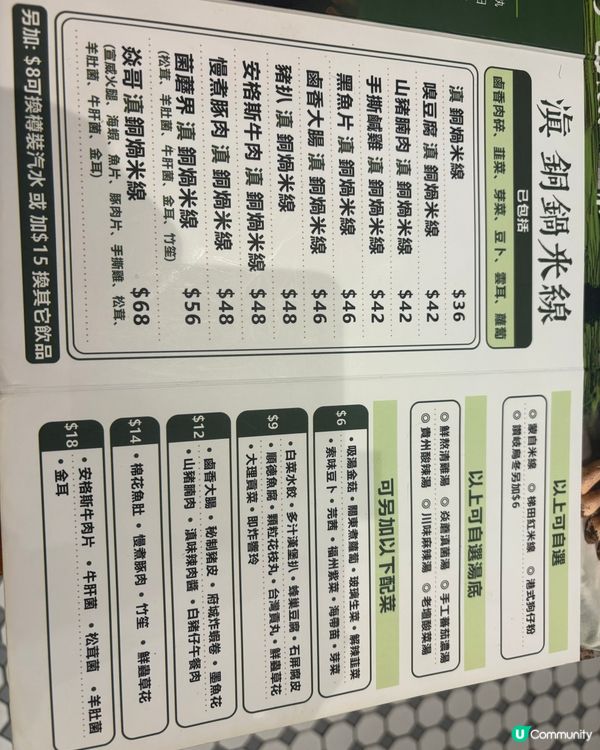 滇 銅鍋米線
已包括
鹵香肉碎、韮菜、芽菜、豆卜、雲耳、蘿蔔
滇 銅鍋米線 $36
嗅豆腐 滇 銅鍋米線 $42
山豬腩肉 滇 銅鍋米線 $42
手撕鹹雞 滇 銅鍋米線 $42
黑魚片 滇 銅鍋米線 $46
鹵香大腸 滇 銅鍋米線 $46
豬扒 滇 銅鍋米線 $48
安格斯牛肉 滇 銅鍋米線 $48
慢煮豚肉 滇 銅鍋米線 $48
菌蘑界 滇 銅鍋米線 $56
(松茸、羊肚菌、牛肝菌、金耳、竹笙)
焱哥 滇 銅鍋米線 $68
(宣威火腿、海蝦、魚片、豚肉片、手撕雞、松茸、
羊肚菌、牛肝菌、金耳)
另加: $8可換樽裝汽水 或 加$15 換其它飲品
以上可自選
◎ 蒙自米線 ◎ 梯田紅米線 ◎ 港式狗仔粉
◎ 讚岐烏冬另加$6
以上可自選湯底
◎ 鮮熬清雞湯 ◎ 焱蘑滇菌湯 ◎ 手工番茄濃湯
◎ 貴州酸辣湯 ◎ 川味麻辣湯 ◎ 老壇酸菜湯
可另加以下配菜
$6
• 吸湯金菇 • 關東煮蘿蔔 • 玻璃生菜 • 解辣韮菜
• 索味豆卜 • 芫茜 • 福州紫菜 • 海帶苗 • 芽菜
$9
• 白菜水餃 • 多汁漢堡扒 • 蜂巢豆腐 • 石屏腐皮
• 順德魚腐 • 顆粒花枝丸 • 台灣貢丸 • 鮮蟲草花
• 大理貢菜 • 即炸響玲
$12
• 鹵香大腸 • 秘制豬皮 • 府城炸蝦卷 • 墨魚花
• 山豬腩肉 • 滇味辣肉醬 • 白豬仔午餐肉
$14
• 棉花魚肚 • 慢煮豚肉 • 竹笙 • 鮮蟲草花
$18
• 安格斯牛肉片 • 牛肝菌 • 松茸菌 • 羊肚菌
• 金耳
U Community